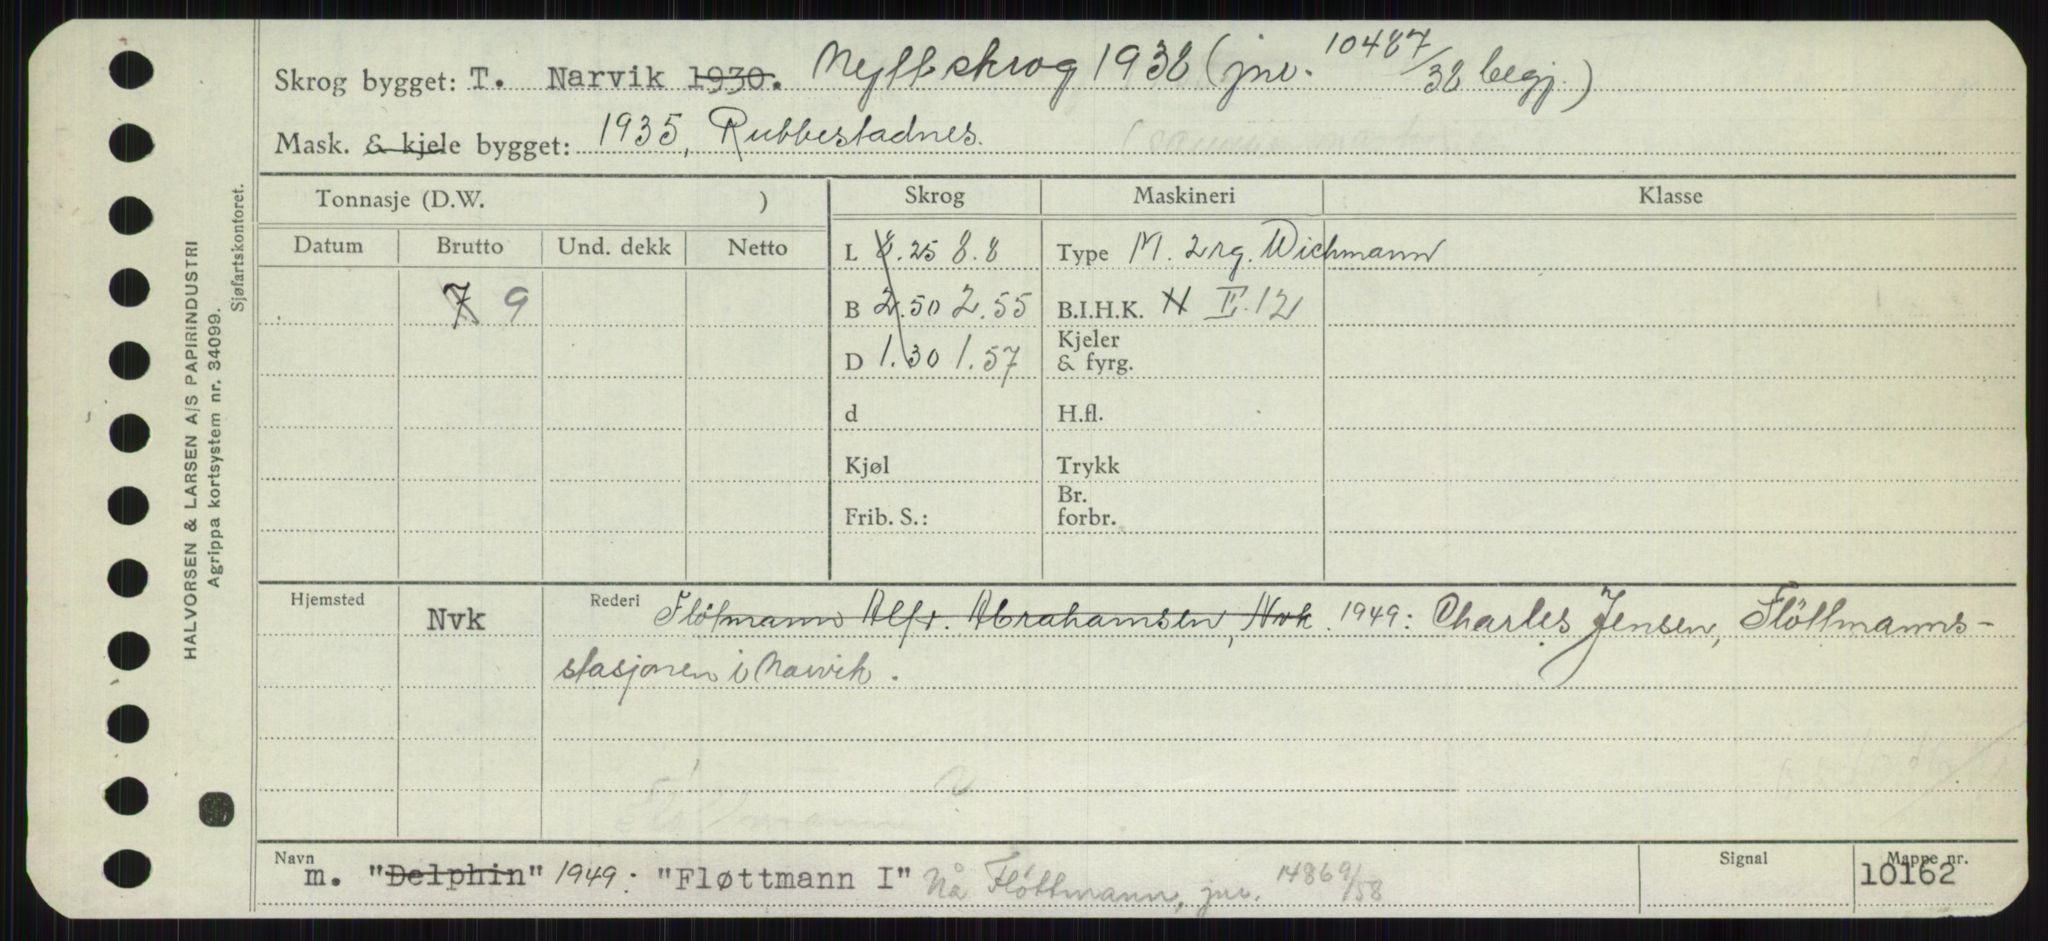 Skrog bygget: T. Narvik 1930. Nytt skrog 1938 (jnr. 10487/38 begj.)
Mask. & kjele bygget: 1935, Rubbestadnes.
Tonnasje (D.W. ) Skrog Maskineri Klasse
Datum Brutto Und. dekk Netto
L 8.25 8.8 Type M. 2rg. Wichmann
7 9 B 2.50 2.55 B.I.H.K. N II. 12
D 1.30 1.57 Kjeler & fyrg.
d H.fl.
Kjøl Trykk
Frib. S.: Br. forbr.
Hjemsted Nvk Rederi Flötmann Alfr. Abrahamsen, Nvk. 1949: Charles Jensen, Flöttmanns-
stasjonen i Narvik.
Navn m. "Delphin" 1949: "Fløttmann I" Nå Flöttmann, jnr. 14869/58
Signal
Mappe nr. 10162
HALVORSEN & LARSEN A/S PAPIRINDUSTRI
Agrippa kortsystem nr. 34099.
Sjøfartskontoret.